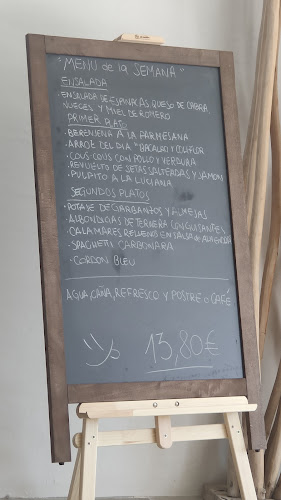 "MENU de la SEMANA"
ENSALADA
-ENSALADA DE ESPINACAS, QUESO DE CABRA
NUECES Y MIEL DE ROMERO
PRIMER PLATO
-BERENJENA A LA PARMESANA
-ARROZ DEL DIA "BACALAO Y COLIFLOR
-COUS COUS CON POLLO Y VERDURA
-REVUELTO DE SETAS SALTEADAS Y JAMON
-PULPITO A LA LUCIANA
SEGUNDOS PLATOS
-POTAJE DE GARBANZOS Y ALMEJAS
-ALBONDIGAS DE TERNERA CON GUISANTES
-CALAMARES RELLENO EN SALSA DE
-SPAGHETTI CARBONARA
-CORDON BLEU
AGUA, CAÑA, REFRESCO Y POSTRE o CAFÉ
13,80€